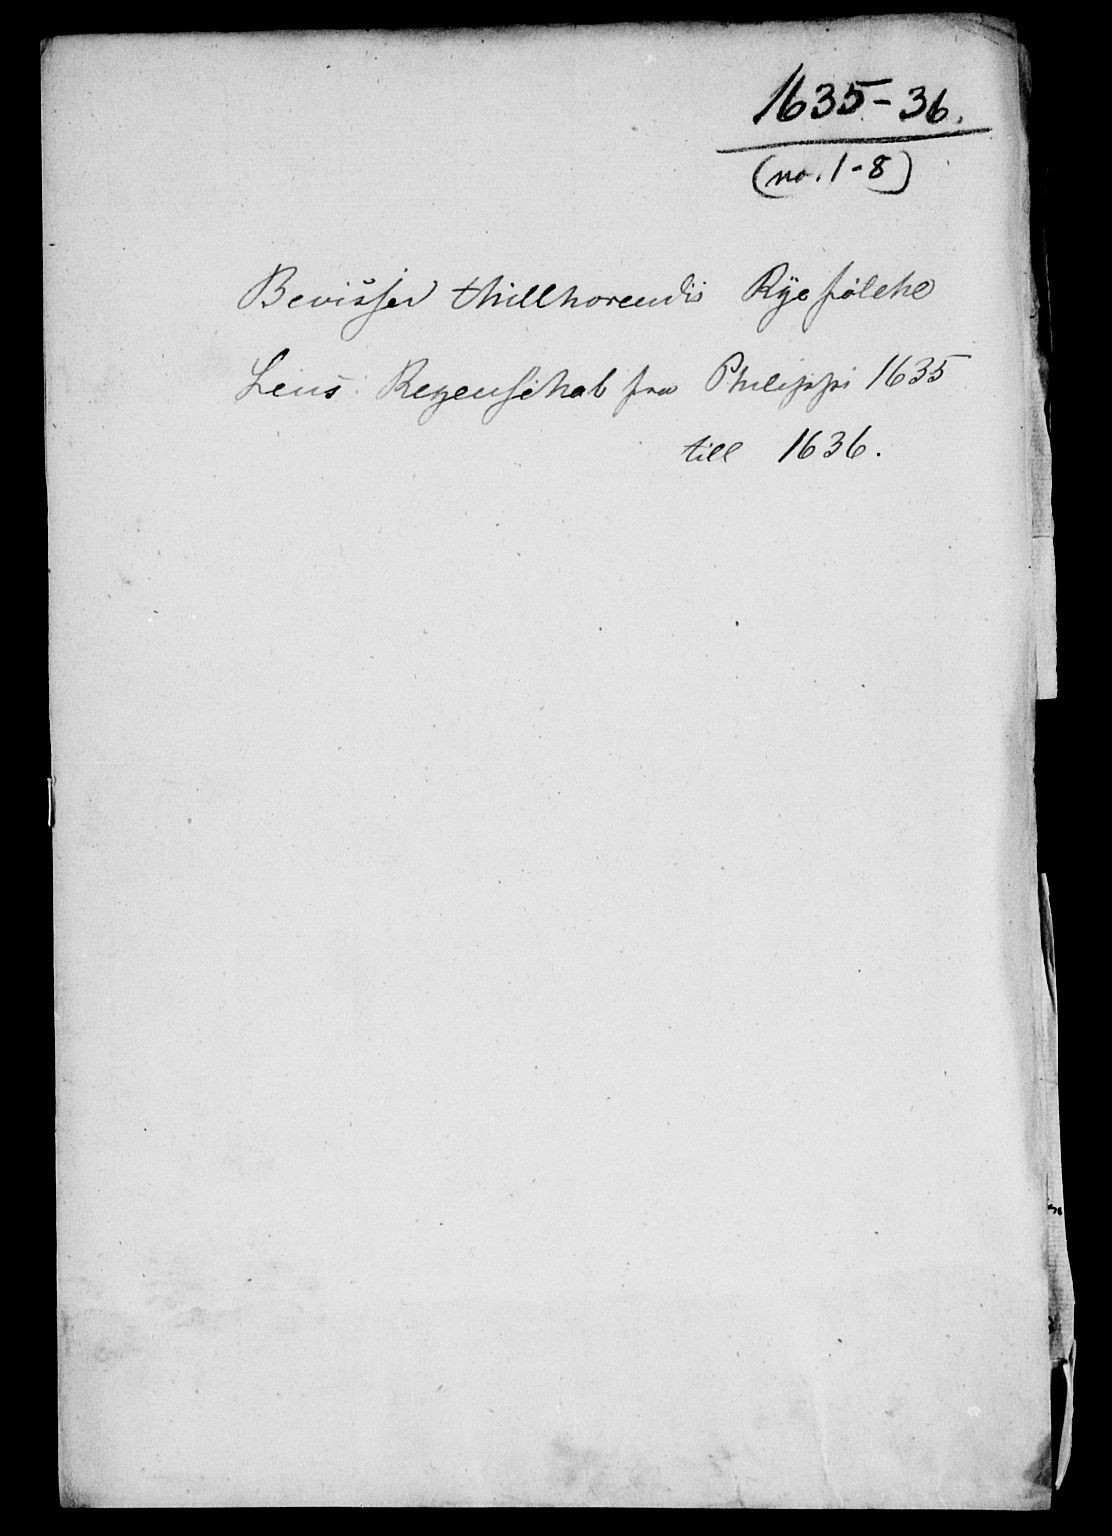 1635-36.
(no. 1-8)
Bevisser thillhorendis Ryefölche
Lens Regenschab fra Philippi 1635
till 1636.